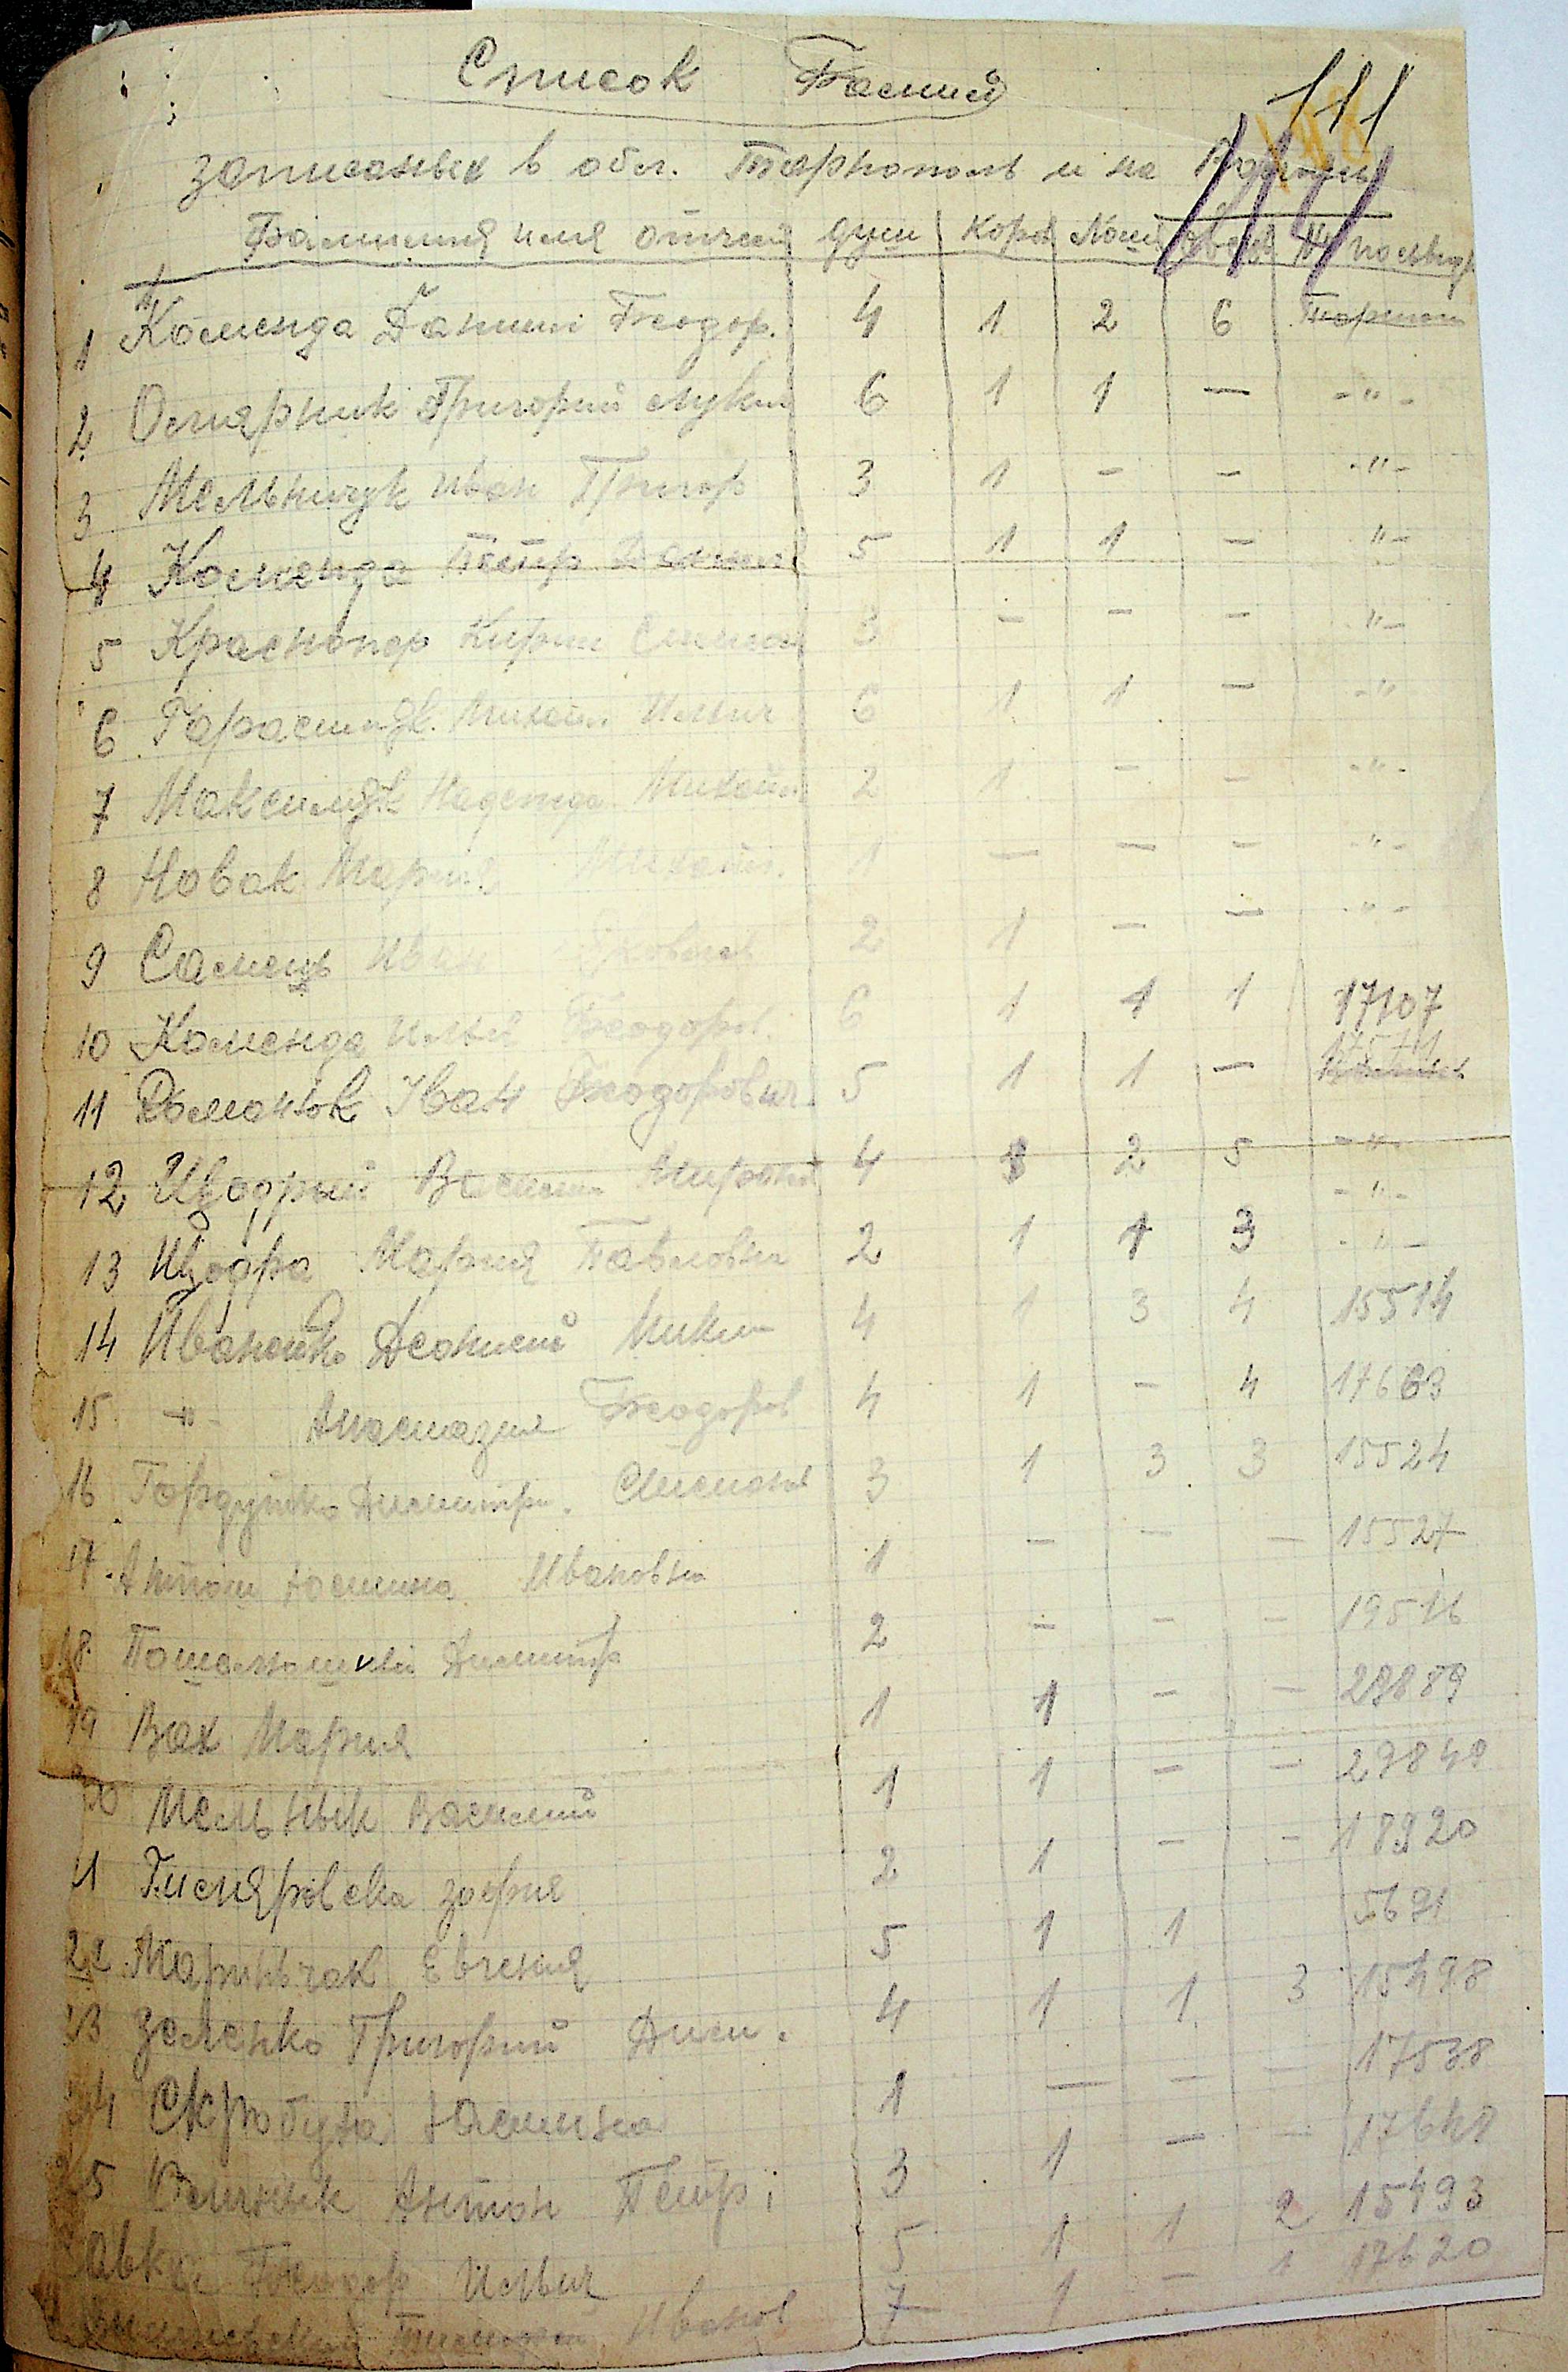 Список Фамилий
111
записаных в обл. Тарнополь и на
Фамилия имя отчест душ Коров Лошад овец № посвид
1 Коменда Данило Теодор. 4 1 2 6 Тарноп
2 Григорий Лукич 6 1 1 — -"-
3 Мельничук Иван Григор 3 1 - - -"-
4 Коменда Петр Данил 5 1 1 - "-
5 Краснопер Кирил Симеон 3 - - - -"-
6 Тарасюк Михаил. Ильич 6 1 1 - -"
7 Максимюк Надежда Михайл 2 1 - - -"-
8 Новак Мария Михайл. 1 — — - -"-
9 Самець Иван 2 1 - - -"-
10 Коменда Илья Теодоров. 6 1 1 1 17107
11 Романюк Іван Теодорович 5 1 1 -
12 Щодрый Василь Мирон 4 1 2 5 -"-
13 Щодра Мария Павловна 2 1 1 3 -"-
14 Иванейко Деонисий Микит 4 1 3 4 15514
15 -"- Анастазия Теодоров 4 1 - 4 17663
16 Гордейко Димитри. Симонов 3 1 3 3 15524
17. Антош Юстина Ивановна 1 - - - 15527
18 Димитр 2 - - - 19516
19 Вах Мария 1 1 - - 29889
20 Мельнык Василий 1 1 - - 29840
21 зофия 2 1 - - 18920
22 Маринчак Евгения 5 1 1 5691
23 Зеленко Григорий Дим. 4 1 1 3 15498
24 Скробута Юстина 1 — - - 17538
25 Антон Петр; 3 1 - - 17648
Теодор Ильич 5 1 1 2 15493
Иванов 7 1 - 1 17620